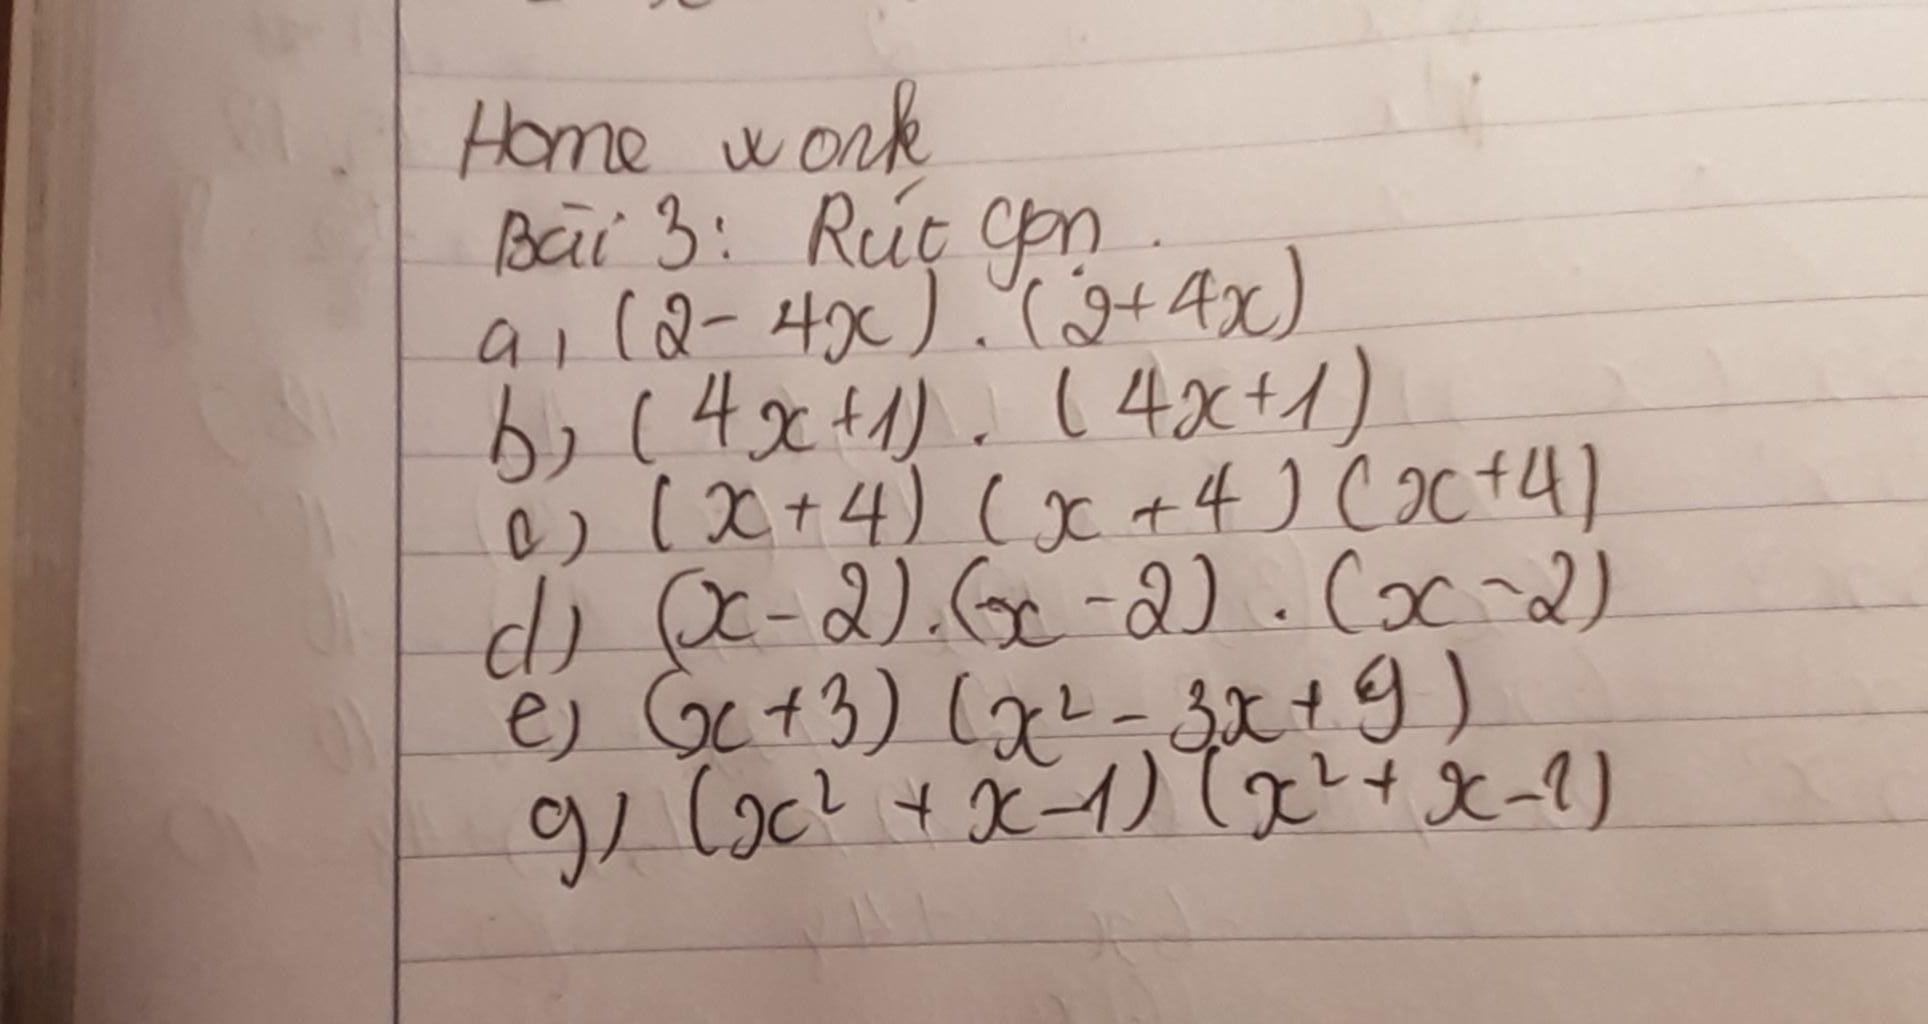 Home work
Bài 3: Rút gọn.
a, (2 - 4x) . (2 + 4x)
b, (4x+1) . (4x+1)
c) (x+4) (x+4) (x+4)
d) (x-2).(x-2) . (x-2)
e) (x+3) (x² - 3x + 9)
g) (x² + x-1) (x² + x-1)